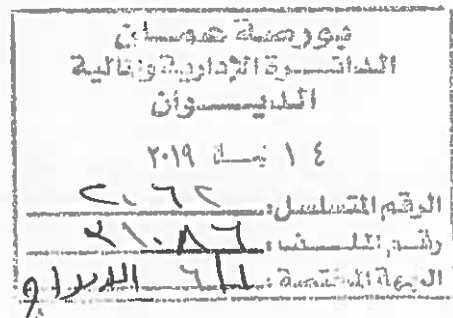 بورصة عمان
الدائرة الإدارية والمالية
الديوان
١٤ نيسان ٢٠١٩
الرقم المتسلسل: ٢٠٦٢
رقم الملف: ٢١٠٨٦
الجهة المختصة: